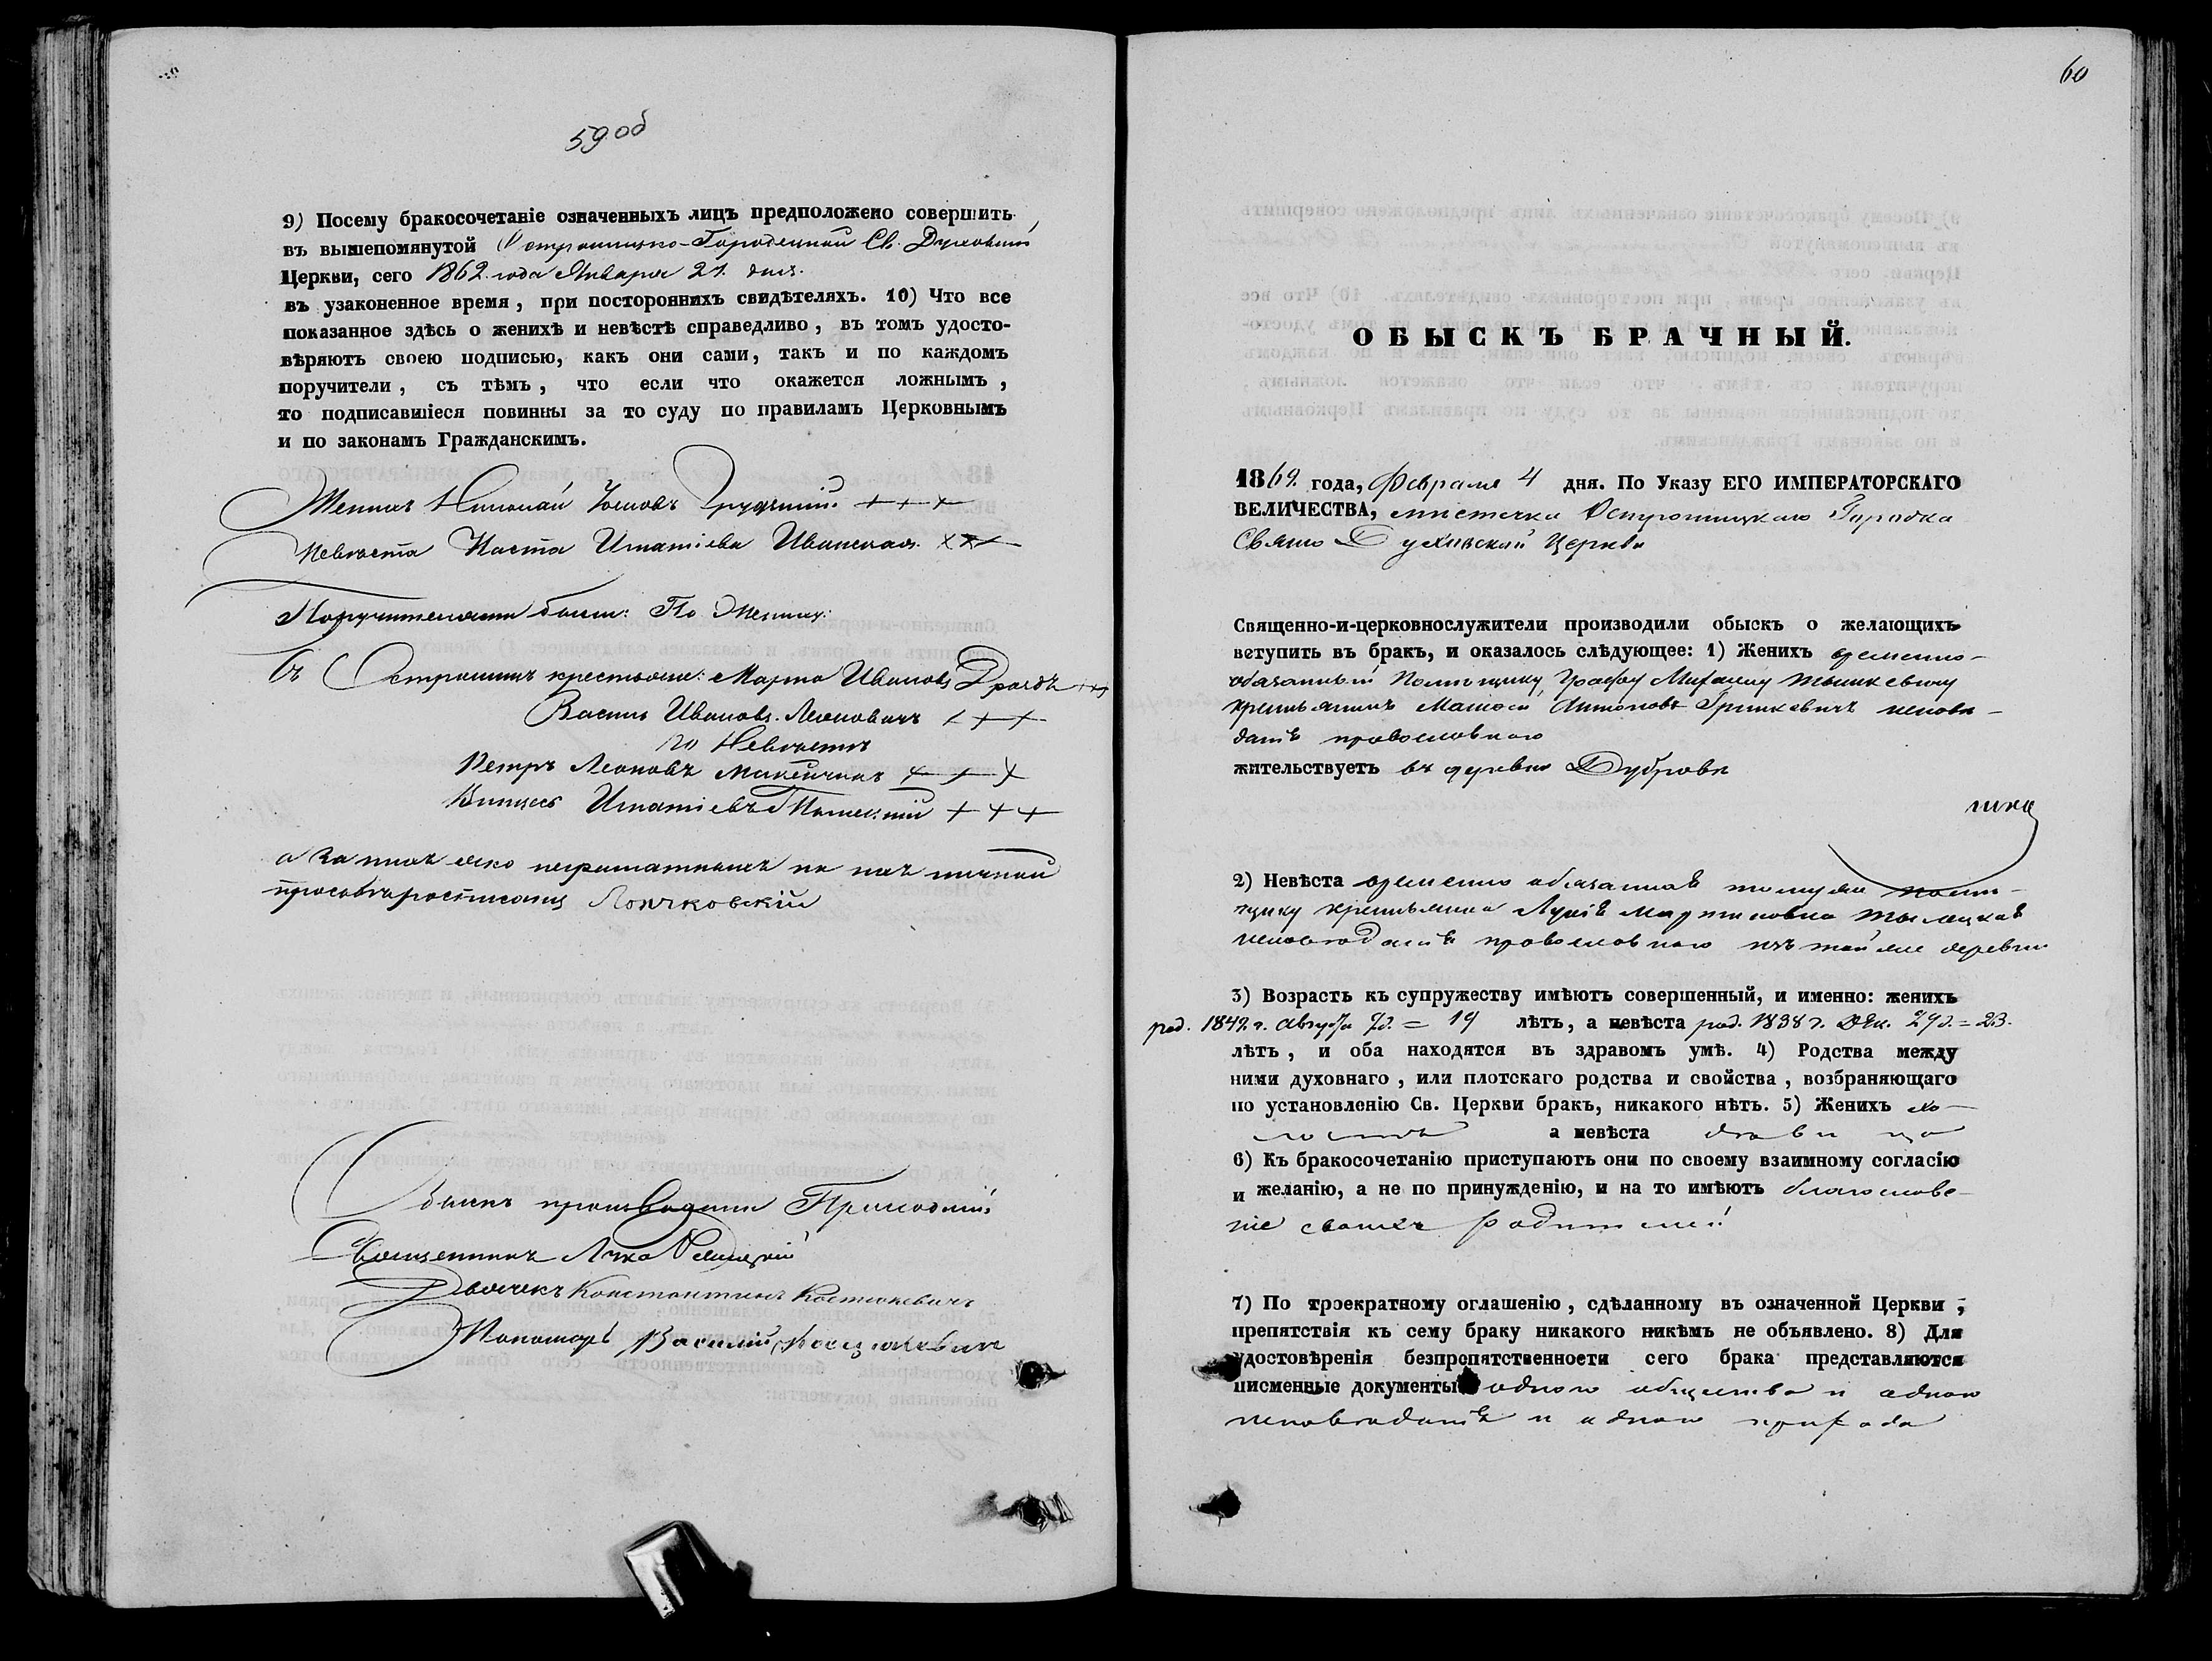 59 об
9) Посему бракосочетаніе означенныхъ лицъ предположено совершить
въ вышепомянутой Острошицко-Городецкой Св. Духовской
Церкви, сего 1862 года Января 21. дня.
въ узаконенное время, при постороннихъ свидѣтеляхъ. 10) Что все
показанное здѣсь о женихѣ и невѣстѣ справедливо, въ томъ удосто-
вѣряютъ своею подписью, какъ они сами, такъ и по каждомъ
поручители, съ тѣмъ, что если что окажется ложнымъ,
то подписавшіеся повинны за то суду по правиламъ Церковнымъ
и по законамъ Гражданскимъ.
Женихъ Николай + + +
Невѣста Наста Игнатіева Иванская + + +
Поручителями были: По Женихѣ:
крестьяне: Иванов Дроздъ + + +
Василь Ивановъ Леоновичъ + + +
по Невѣстѣ
Петръ Леоновъ + + +
Винцесь Игнатіевъ + + +
а за нихъ яко неграматныхъ по ихъ личной
просьбѣ росписался
Обыскъ производили Приходскій
Священникъ Лука
Дьячекъ Константинъ Костюкевичъ
Пономарь Василій
60
ОБЫСКЪ БРАЧНЫЙ.
1862 года, Февраля 4 дня. По Указу ЕГО ИМПЕРАТОРСКАГО
ВЕЛИЧЕСТВА, мистечка Острошицкаго Городка
Свято Духовской Церкви
Священно-и-церковнослужители производили обыскъ о желающихъ
вступить въ бракъ, и оказалось слѣдующее: 1) Женихъ временно-
обязанный Помѣщику Графу Михаилу Тышкевичу
крестьянинъ Антоновъ Гринкевичъ исповѣ-
данія православнаго
жительствуетъ въ деревни Дубровки
2) Невѣста временно обязанная тому же помѣ-
щику крестьянка Мартиновна
исповѣданія православнаго изъ той же деревни
3) Возрастъ къ супружеству имѣютъ совершенный, и именно: женихъ
род. 1842 г. Августа 7 д. = 19 лѣтъ, а невѣста род. 1838 г. Дек. 29 д. = 23.
лѣтъ, и оба находятся въ здравомъ умѣ. 4) Родства между
ними духовнаго, или плотскаго родства и свойства, возбраняющаго
по установленію Св. Церкви бракъ, никакого нѣтъ. 5) Женихъ хо-
лостъ а невѣста дѣвица
6) Къ бракосочетанію приступаютъ они по своему взаимному согласію
и желанію, а не по принужденію, и на то имѣютъ благослове-
ніе своихъ родителей
7) По троекратному оглашенію, сдѣланному въ означенной Церкви,
препятствія къ сему браку никакого никѣмъ не объявлено. 8) Для
удостовѣренія безпрепятственности сего брака представляются
писменные документы одного общества и одного
исповѣданія и одного прихода